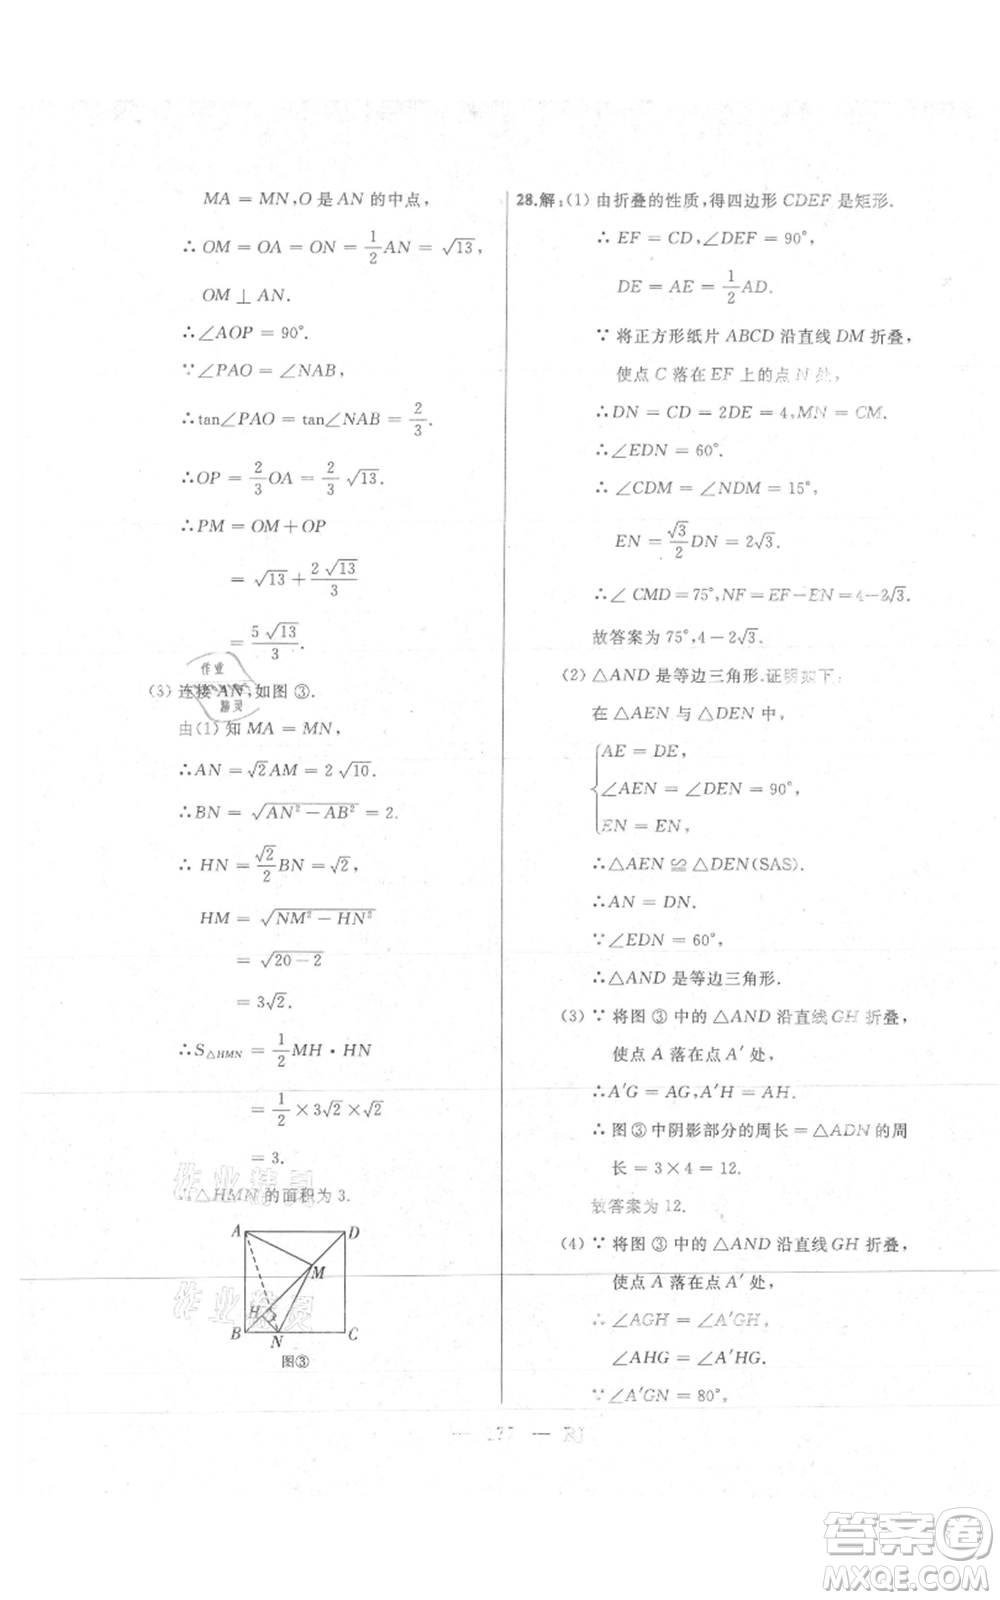 MA = MN,O 是 AN 的中点，
∴ OM = OA = ON = 1/2 AN = √13，
OM ⊥ AN.
∴∠AOP = 90°.
∵∠PAO = ∠NAB，
∴tan∠PAO = tan∠NAB = 2/3.
∴OP = 2/3 OA = 2/3 √13.
∴PM = OM + OP
= √13 + 2√13/3
= 5√13/3.
(3) 连接 AN，如图 ③.
由(1) 知 MA = MN，
∴AN = √2AM = 2√10.
∴BN = √(AN² − AB²) = 2.
∴ HN = √2/2 BN = √2，
HM = √(NM² − HN²)
= √(20 − 2)
= 3√2.
∴S△HMN = 1/2 MH · HN
= 1/2 × 3√2 × √2
= 3.
∴△HMN 的面积为 3.
A D
M
H
B N C
图③
28.解：(1) 由折叠的性质，得四边形 CDEF 是矩形.
∴ EF = CD,∠DEF = 90°，
DE = AE = 1/2 AD.
∵ 将正方形纸片 ABCD 沿直线 DM 折叠，
使点 C 落在 EF 上的点 N 处，
∴DN = CD = 2DE = 4,MN = CM.
∴∠EDN = 60°.
∴ ∠CDM = ∠NDM = 15°，
EN = √3/2 DN = 2√3.
∴∠ CMD = 75°,NF = EF − EN = 4 − 2√3.
故答案为 75°,4 − 2√3.
(2) △AND 是等边三角形.证明如下：
在 △AEN 与 △DEN 中，
AE = DE，
∠AEN = ∠DEN = 90°，
EN = EN，
∴△AEN ≌ △DEN(SAS).
∴AN = DN.
∵∠EDN = 60°，
∴△AND 是等边三角形.
(3) ∵ 将图 ③ 中的 △AND 沿直线 GH 折叠，
使点 A 落在点 A′ 处，
∴A′G = AG,A′H = AH.
∴ 图 ③ 中阴影部分的周长 = △ADN 的周
长 = 3 × 4 = 12.
故答案为 12.
(4) ∵ 将图 ③ 中的 △AND 沿直线 GH 折叠，
使点 A 落在点 A′ 处，
∴ ∠AGH = ∠A′GH，
∠AHG = ∠A′HG.
∵∠A′GN = 80°，
RJ
作业
精灵
作业精灵
作业精灵
答案卷
MXQE.COM